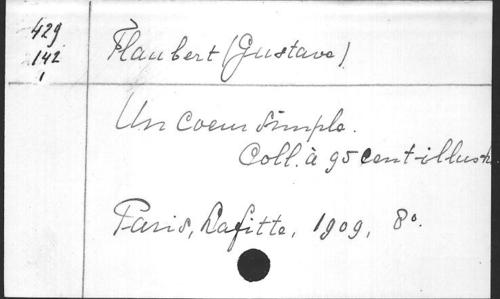 429
142
1
Flaubert (Gustave)
Un Coeur simple.
Coll. à 95 cent-illustr.
Paris, Lafitte, 1909, 8°.